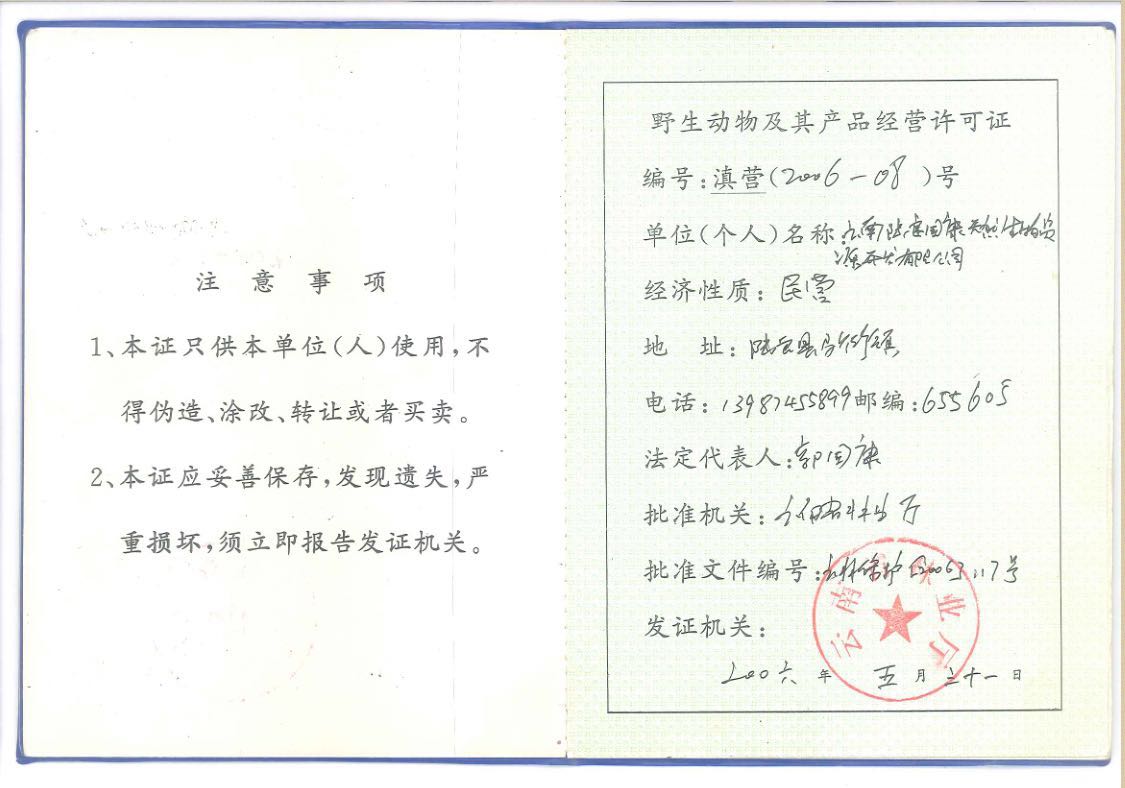 注意事项
1、本证只供本单位(人)使用,不
得伪造、涂改、转让或者买卖。
2、本证应妥善保存,发现遗失,严
重损坏,须立即报告发证机关。
野生动物及其产品经营许可证
编号:滇营(2006-08)号
单位(个人)名称:云南陆良国康天然生物资
源开发有限公司
经济性质:民营
地 址:陆良县马街镇
电话:13987455899邮编:655605
法定代表人:郭国康
批准机关:云南省林业厅
批准文件编号:云林保护〔2006〕117号
发证机关:
云南省林业厅
200六年 五月三十一日